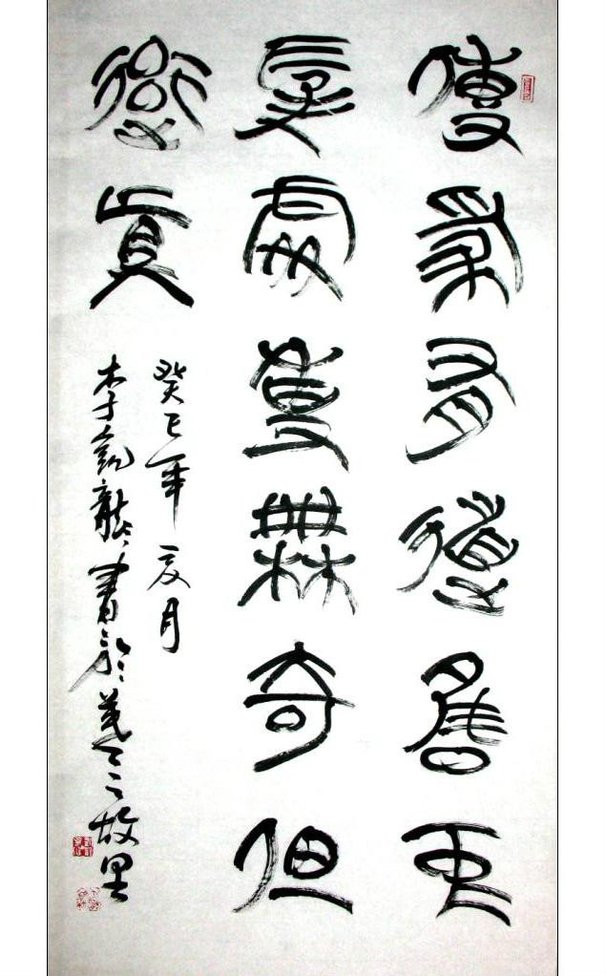 傳家有道唯存
厚處事無奇但
率真
癸巳年夏月
李龍書於羲之故里